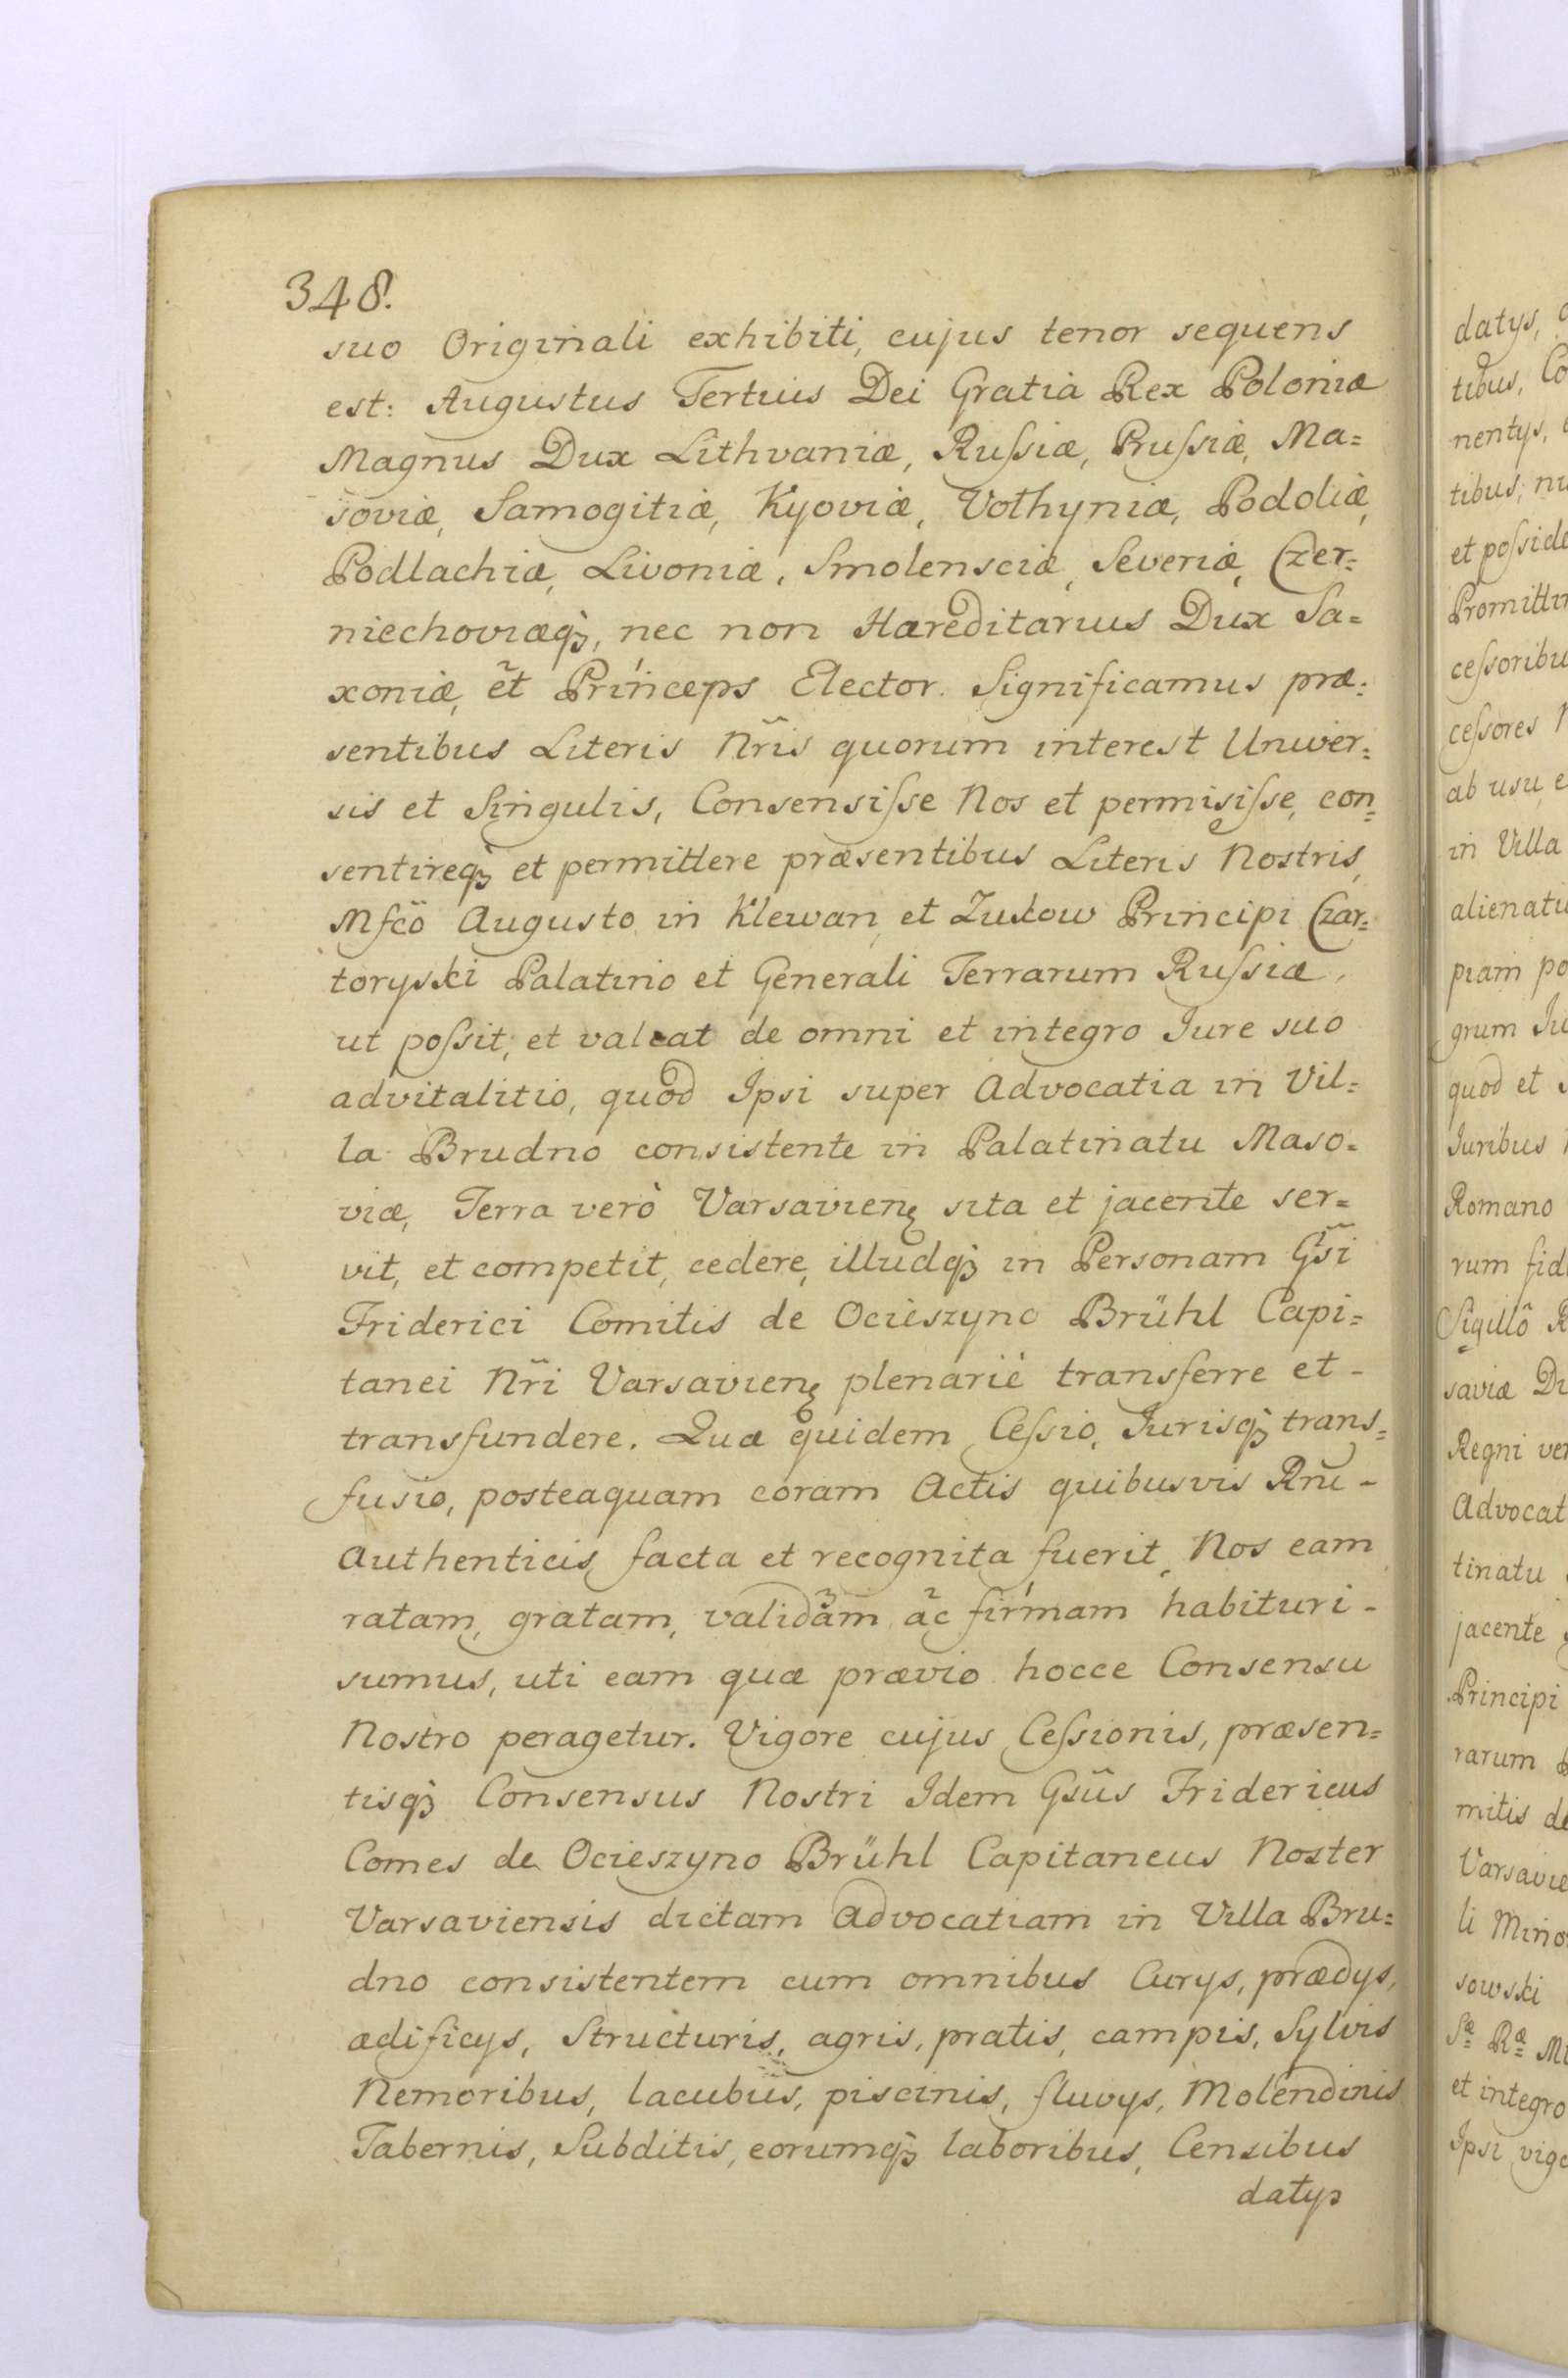 348.
suo Originali exhibiti, cujus tenor sequens
est: Augustus Tertius Dei Gratia Rex Poloniæ
Magnus Dux Lithvaniæ, Rußiæ, Prußiæ, Ma=
soviæ, Samogitiæ, Kyoviæ, Volhyniæ, Podoliæ,
Podlachiæ, Livoniæ, Smolensciæ, Severiæ, Czer=
niechoviæqꝫ, nec non Hæreditarius Dux Sa=
xoniæ, et Princeps Elector. Significamus præ=
sentibus Literis Nr̃is quorum interest Univer=
sis et Singulis, Consensiſse Nos et permisiſse, con=
sentireqꝫ et permittere præsentibus Literis Nostris,
Mfcõ Augusto in Klewan et Zukow Principi Czar=
toryski Palatino et Generali Terrarum Rußiæ,
ut poſsit, et valeat de omni et integro Jure suo
advitalitio, quod Ipsi super Advocatia in Vil=
la Brudno consistente in Palatinatu Maso=
viæ, Terra verò Varsavien̨ sita et jacente ser=
vit, et competit, cedere, illudqꝫ in Personam Gs̃i
Friderici Comitis de Ocieszyno Brühl Capi=
tanei Nr̃i Varsavien̨ plenariè transferre et -
transfundere. Quæ quidem Ceſsio, Jurisqꝫ trans=
fusio, posteaquam coram Actis quibusvis Rñi -
Authenticis facta et recognita fuerit, Nos eam
ratam, gratam, validam ac firmam habituri -
sumus, uti eam quæ prævio hocce Consensu
Nostro peragetur. Vigore cujus Ceſsionis, præsen=
tisqꝫ Consensus Nostri Idem Gsũs Fridericus
Comes de Ocieszyno Brühl Capitaneus Noster
Varsaviensis dictam Advocatiam in Villa Bru=
dno consistentem cum omnibus Curys, prædys,
ædificys, Structuris, agris, pratis, campis, Sylvis
Nemoribus, lacubus, piscinis, fluvys, Molendinis
Tabernis, Subditis, eorumqꝫ laboribus, Censibus
datys
datys,
tibus, Co
nentys,
tibus,
et poſside
Promitti
ceſsoribu
ceſsores
ab usu e
in Villa
alienatu
piam po
grum Ju
quod et
Juribus
Romano
rum fid
Sigillô R
saviæ Di
Regni ver
Advocat
tinatu
jacente
Principi
rarum
mitis de
Varsavie
li Mino
sowski
Sæ Ræ
et integro
Ipsi vigo